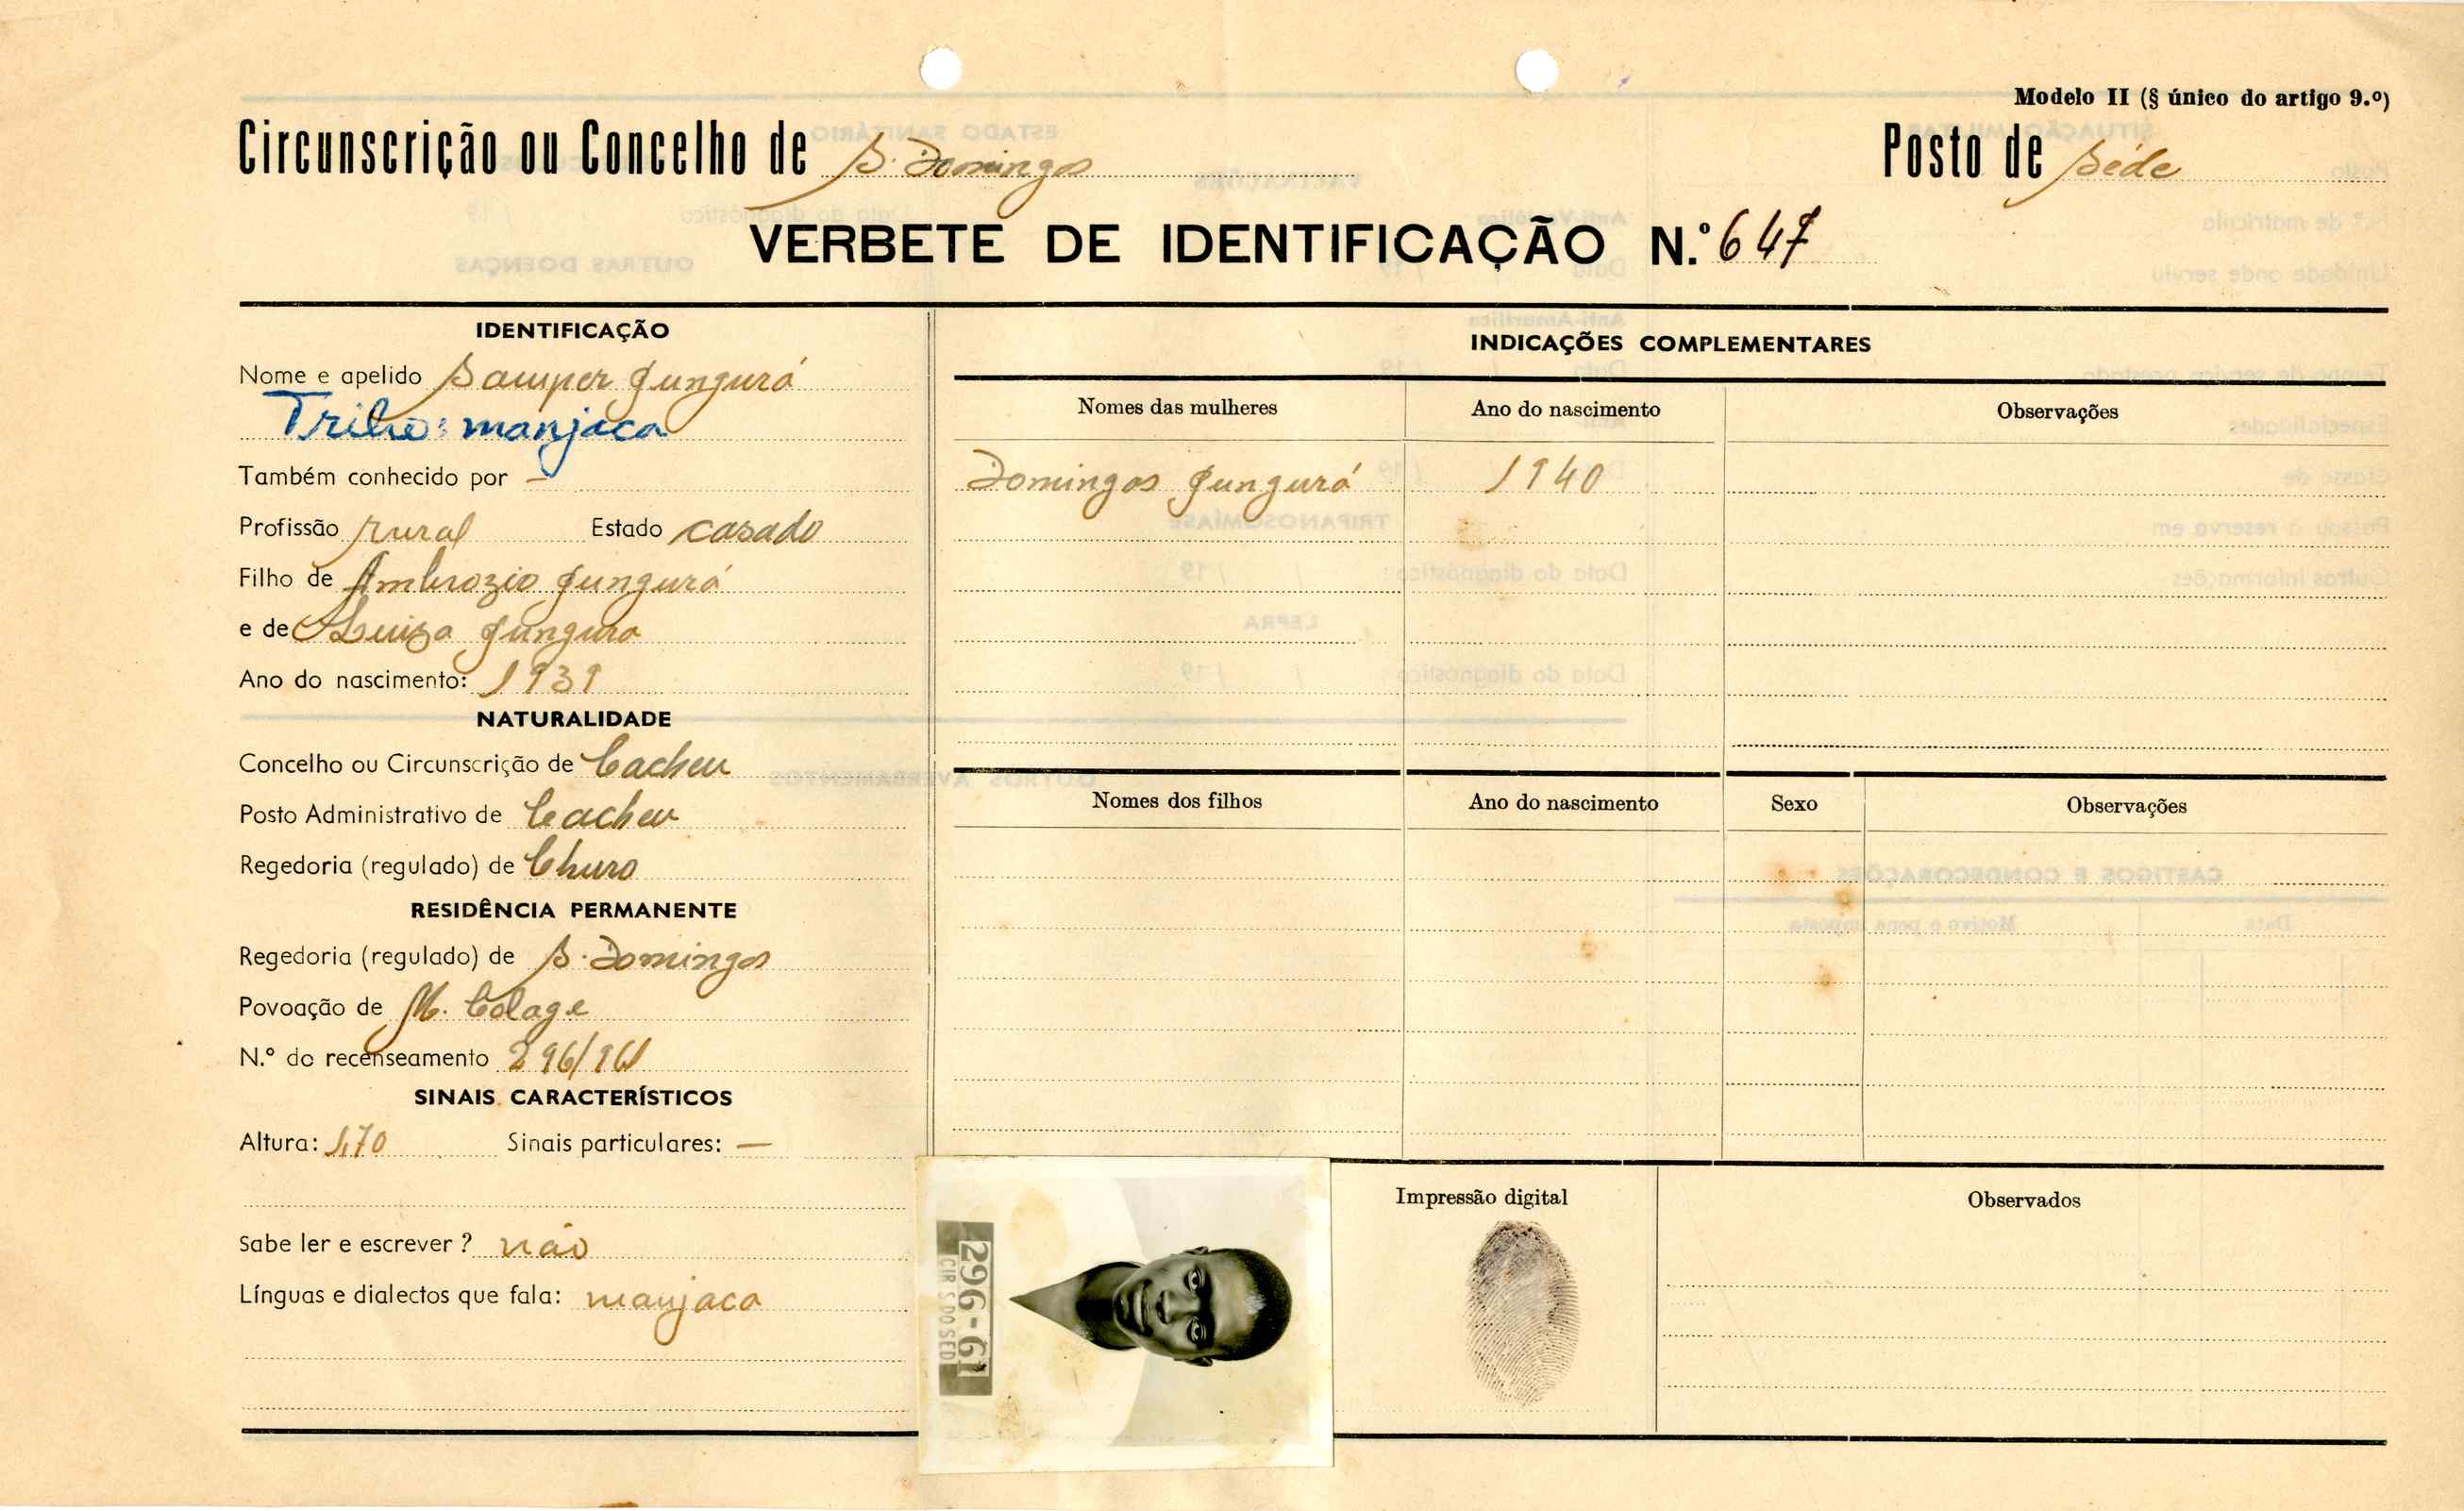 Modelo II (§ único do artigo 9.º)
Circunscrição ou Concelho de S. Domingos
Posto de Séde
VERBETE DE IDENTIFICAÇÃO N.º 647
IDENTIFICAÇÃO
Nome e apelido Samper Gungurá
Tribo: manjaca
Também conhecido por —
Profissão rural Estado casado
Filho de Ambrozio Gungurá
e de Luiza Gungura
Ano do nascimento: 1939
NATURALIDADE
Concelho ou Circunscrição de Cacheu
Posto Administrativo de Cacheu
Regedoria (regulado) de Churo
RESIDÊNCIA PERMANENTE
Regedoria (regulado) de S. Domingos
Povoação de M. Colage
N.º do recenseamento 296/961
SINAIS CARACTERÍSTICOS
Altura: 1,70 Sinais particulares: —
Sabe ler e escrever? não
Línguas e dialectos que fala: manjaca
INDICAÇÕES COMPLEMENTARES
Nomes das mulheres Ano do nascimento Observações
Domingas Gungurá 1940
Nomes dos filhos Ano do nascimento Sexo Observações
296-61
CIR S DO SED
Impressão digital
Observados